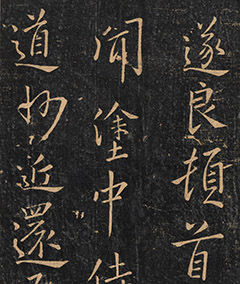 遂良頓首
聞塗中侍
道妙近還